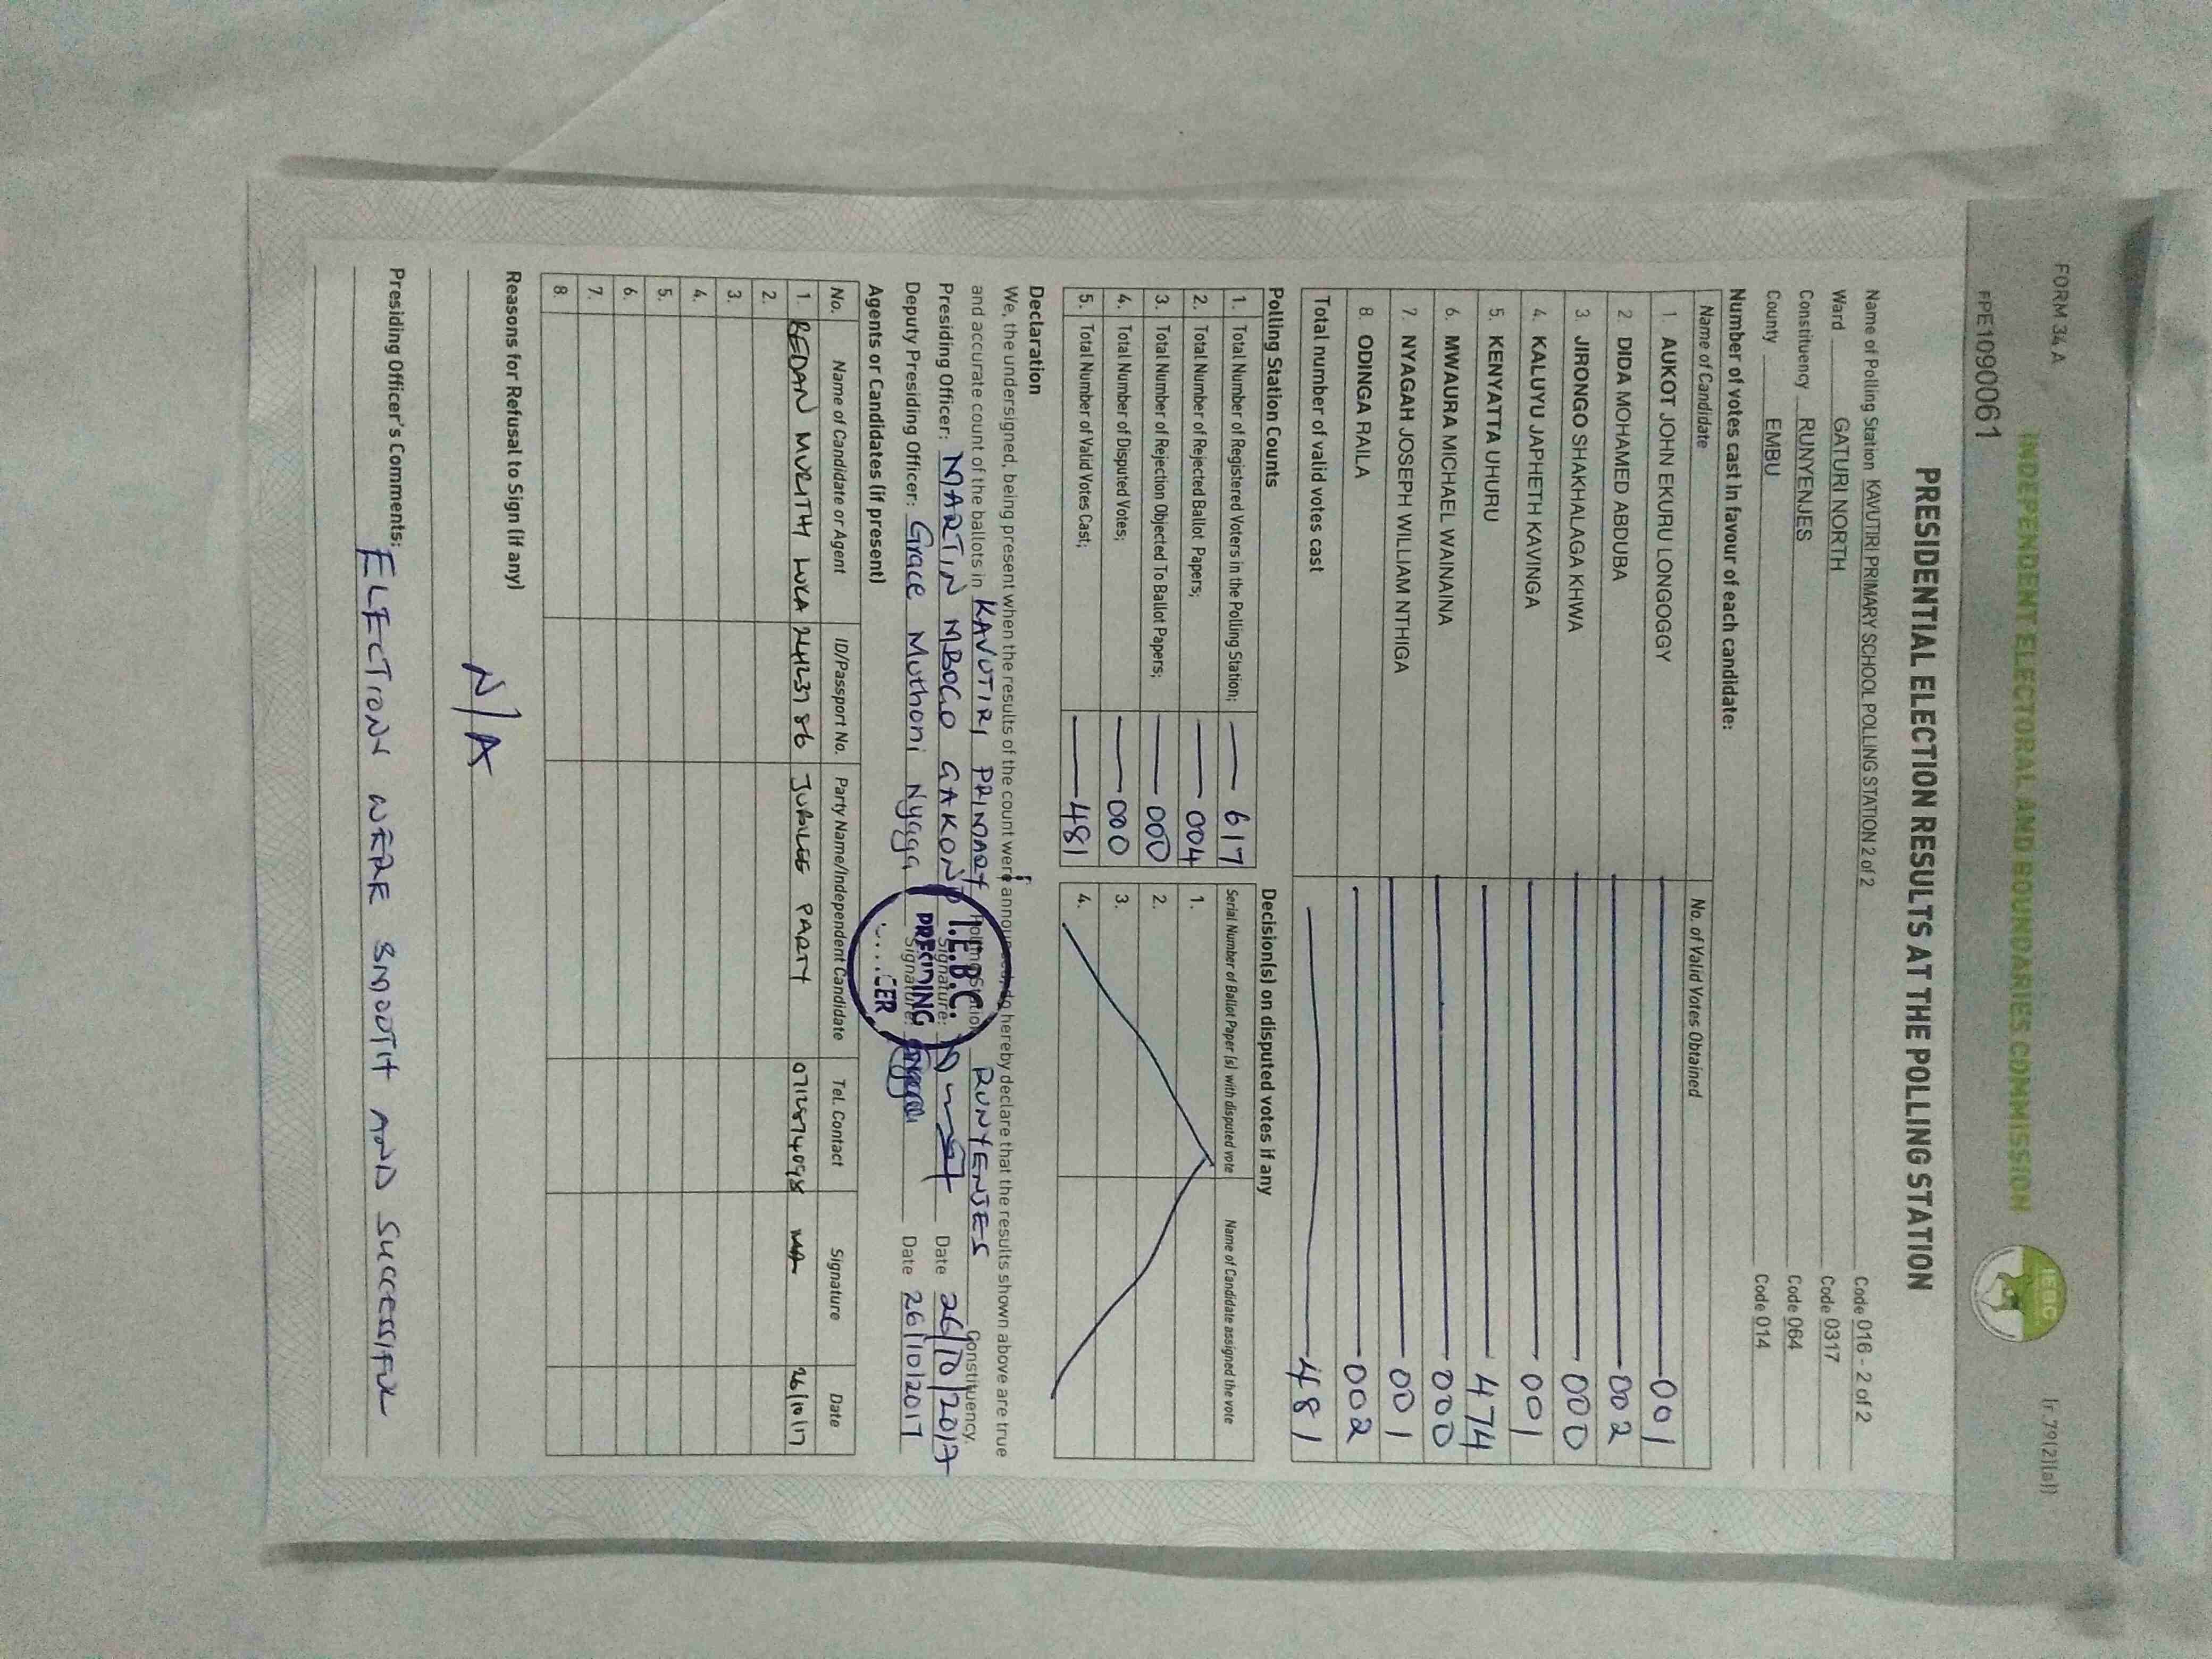 FORM 34 A
(r.79(2)(a))
INDEPENDENT ELECTORAL AND BOUNDARIES COMMISSION
IEBC
PPE1090061
PRESIDENTIAL ELECTION RESULTS AT THE POLLING STATION
Name of Polling Station KAVUTIRI PRIMARY SCHOOL POLLING STATION 2 of 2 Code 016 - 2 of 2
Ward GATURI NORTH Code 0317
Constituency RUNYENJES Code 064
County EMBU Code 014
Number of votes cast in favour of each candidate:
Name of Candidate No. of Valid Votes Obtained
1. AUKOT JOHN EKURU LONGOGGY 001
2. DIDA MOHAMED ABDUBA 002
3. JIRONGO SHAKHALAGA KHWA 000
4. KALUYU JAPHETH KAVINGA 001
5. KENYATTA UHURU 474
6. MWAURA MICHAEL WAINAINA 000
7. NYAGAH JOSEPH WILLIAM NTHIGA 001
8. ODINGA RAILA 002
Total number of valid votes cast 481
Polling Station Counts
1. Total Number of Registered Voters in the Polling Station; 617
2. Total Number of Rejected Ballot Papers; 004
3. Total Number of Rejection Objected To Ballot Papers; 000
4. Total Number of Disputed Votes; 000
5. Total Number of Valid Votes Cast; 481
Decision(s) on disputed votes if any
Serial Number of Ballot Paper (s) with disputed vote Name of Candidate assigned the vote
1.
2.
3.
4.
Declaration
We, the undersigned, being present when the results of the count were announced, do hereby declare that the results shown above are true
and accurate count of the ballots in KAVUTIRI PRIMARY Polling Station RUNYENJES Constituency.
Presiding Officer: MARTIN MBOGO GAKONO Signature: Date 26/10/2017
Deputy Presiding Officer: Grace Muthoni Nyaga Signature: Date 26/10/2017
I.E.B.C.
PRECIDING
CER.
Agents or Candidates (if present)
No. Name of Candidate or Agent ID/Passport No. Party Name/Independent Candidate Tel. Contact Signature Date
1. BEDAN MURITHI LUCA JUBILEE PARTY 0712874098 26/10/17
2.
3.
4.
5.
6.
7.
8.
Reasons for Refusal to Sign (if any)
N/A
Presiding Officer's Comments; ELECTIONS WERE SMOOTH AND SUCCESSIFUL